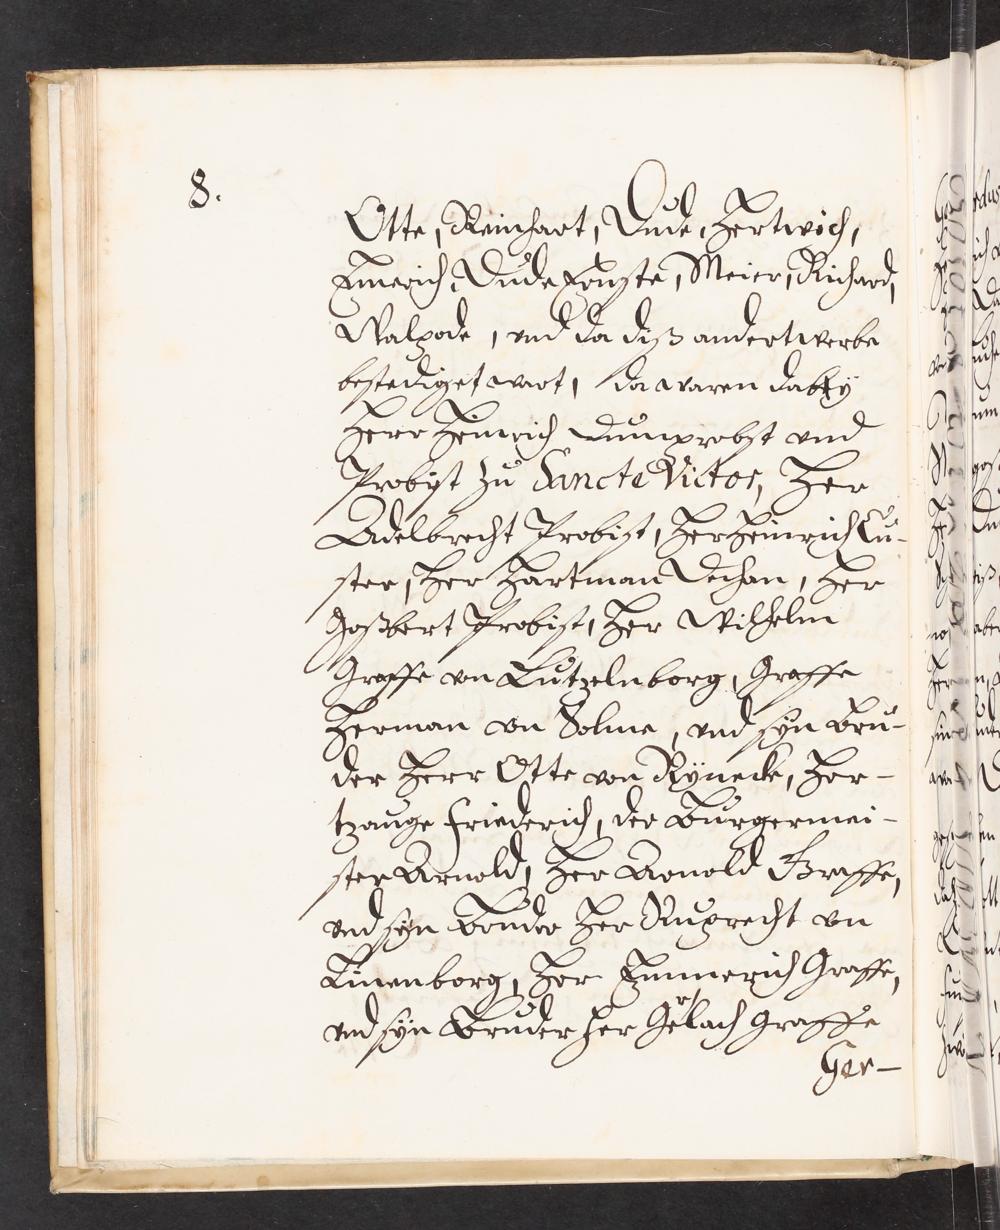 8.
Otte, Reinhart, Dude, Hertwich,
Emerich, Dude Ernste, Meier, Richard,
Walpode, vnd da diß andertwerbe
bestediget wart, da waren dabey
Herr Heinrich Dumprobst vnd
Probist zu Sancte Victor, Her
Adelbrecht Probist, Her Heinrich Cu-
ster, Her Hartman Dechan, Her
Goßbert Probist, Her Wilhelm
Graffe von Lutzelnborg, Graffe
Herman von Solme, vnd syn Bru-
der Herr Otte von Rynecke, Her-
tzauge Friederich, der Burgermei-
ster Arnold, Her Arnold Graffe,
vnd syn Bruder Her Ruprecht von
Linenborg, Her Emmerich Graffe,
vnd syn Bruder Her Gerlach Graffe
Ger-